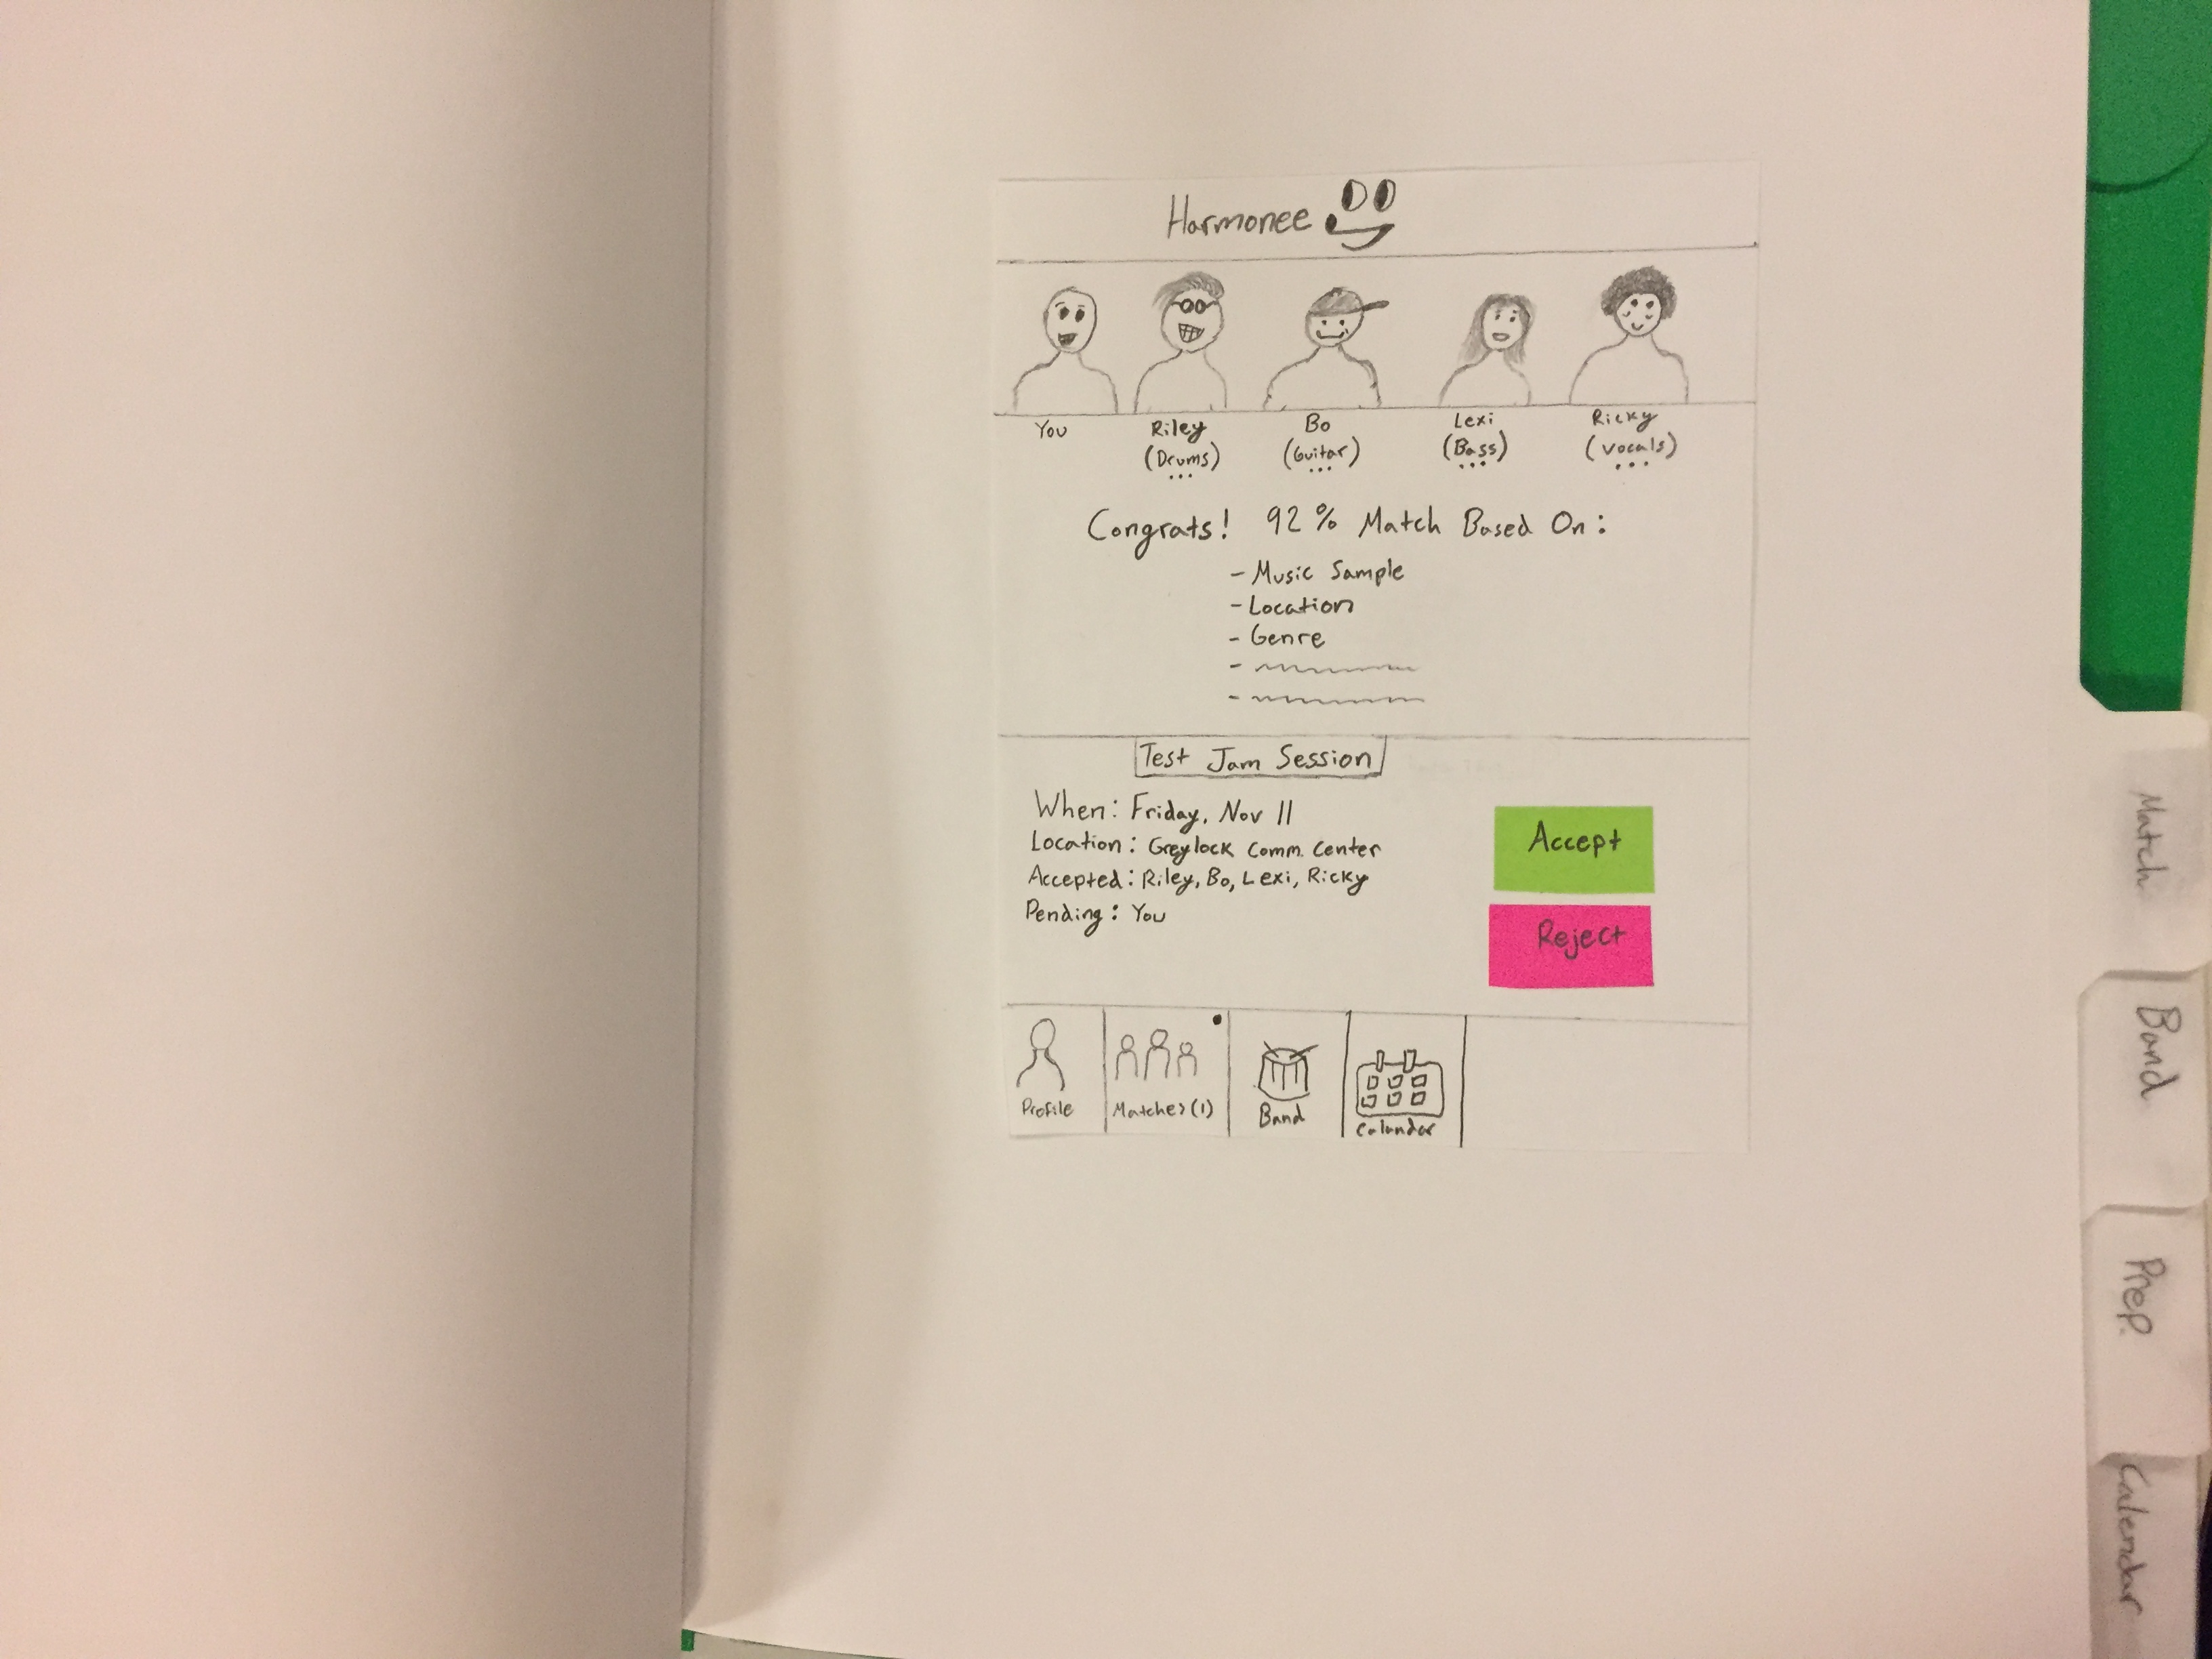 Harmonee
You
Riley
(Drums)
Bo
(Guitar)
Lexi
(Bass)
Ricky
(Vocals)
Congrats! 92% Match Based On:
- Music Sample
- Location
- Genre
Test Jam Session
When: Friday, Nov 11
Location: Greylock Comm. Center
Accepted: Riley, Bo, Lexi, Ricky
Pending: You
Accept
Reject
Profile
Matches(1)
Band
Calendar
Match
Band
Prep.
Calendar